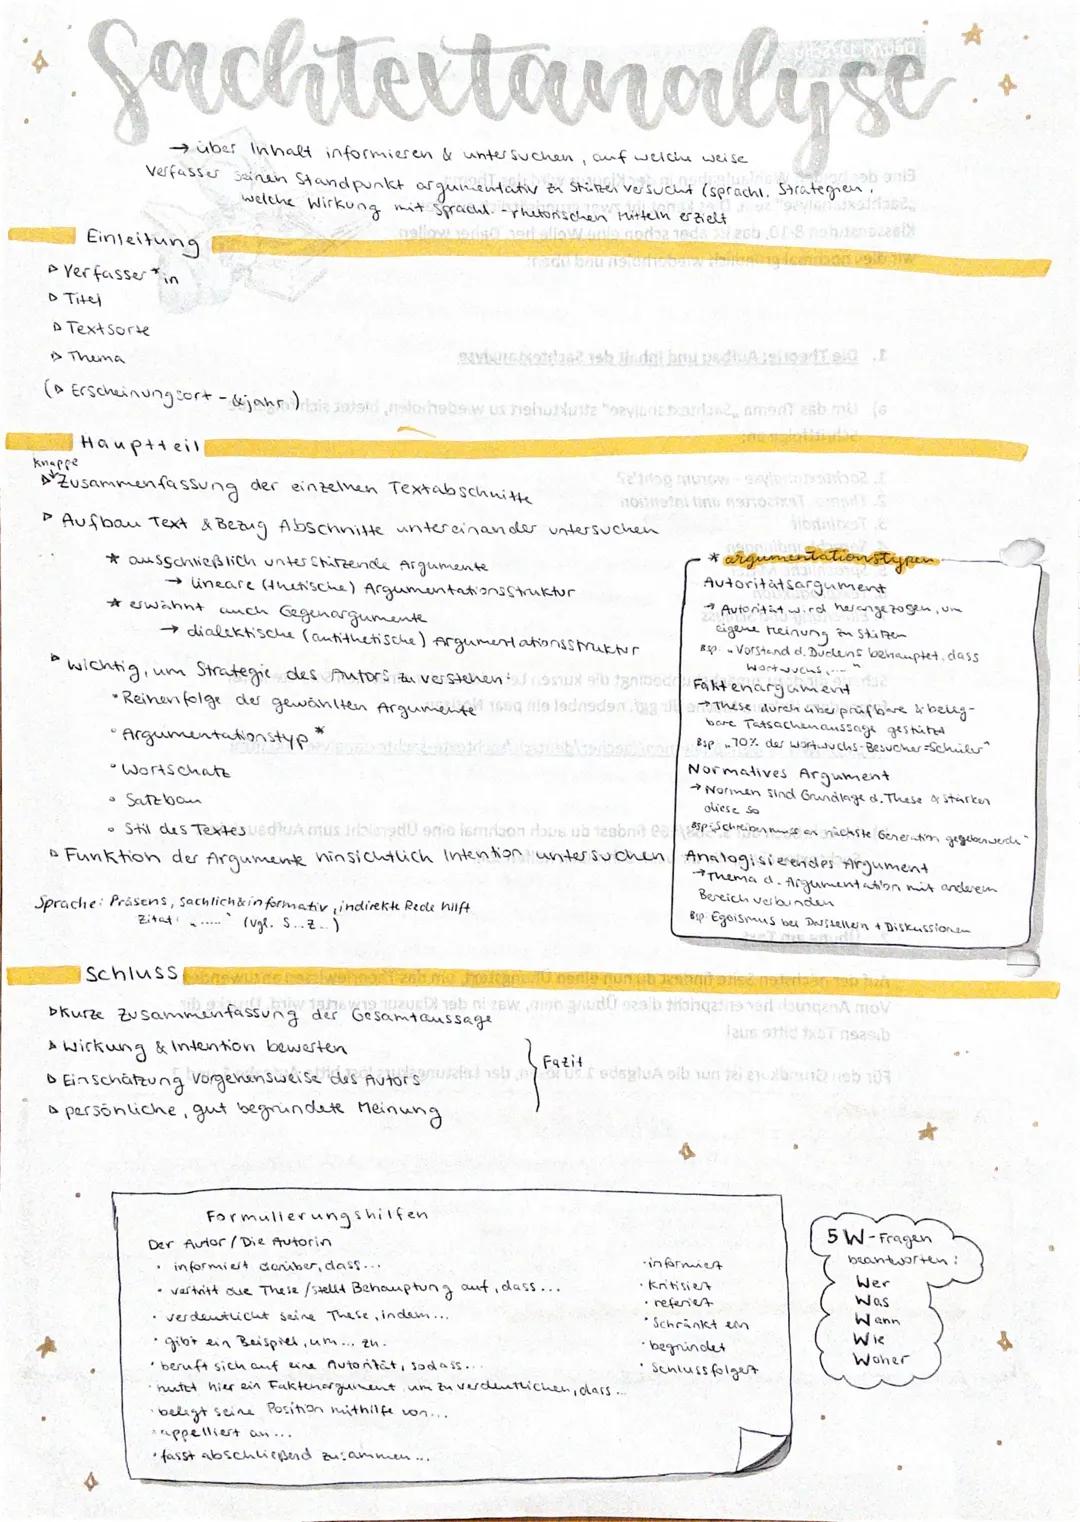 Sachtextanalyse
→ über Inhalt informieren & untersuchen, auf welche weise
Verfasser seinen Standpunkt argumentativ zu stützen versucht (sprachl. Strategien,
welche Wirkung mit sprachl.-rhetorischen Mitteln erzielt
Einleitung
▹ Verfasser*in
▹ Titel
▹ Textsorte
▹ Thema
(▹ Erscheinungsort - &jahr)
Hauptteil
knappe
▹ Zusammenfassung der einzelnen Textabschnitte
▹ Aufbau Text & Bezug Abschnitte untereinander untersuchen
* ausschließlich unterstützende Argumente
→ lineare (thetische) Argumentationsstruktur
* erwähnt auch Gegenargumente
→ dialektische (antithetische) Argumentationsstruktur
▹ wichtig, um Strategie des Autors zu verstehen:
° Reihenfolge der gewählten Argumente
° Argumentationstyp *
° Wortschatz
° Satzbau
° Stil des Textes
▹ Funktion der Argumente hinsichtlich Intention untersuchen
Sprache: Präsens, sachlich&informativ, indirekte Rede hilft
Zitat: „....." (vgl. S...Z..)
* argumentationstypen
Autoritätsargument
→ Autorität wird herangezogen, um
eigene Meinung zu stützen
Bsp. „Vorstand d. Dudens behauptet, dass
Wortwuchs,..."
Faktenargument
→ These durch überprüfbare & beleg-
bare Tatsachenaussage gestützt
Bsp. „70% der Wortwuchs-Besucher=Schüler"
Normatives Argument
→ Normen sind Grundlage d. These & stärken
diese so
Bsp: Schreiben muss an nächste Generation gegeben werden"
Analogisierendes Argument
→ Thema d. Argumentation mit anderem
Bereich verbunden
Bsp: Egoismus bei Darstellern + Diskussionen
Schluss
▹ kurze Zusammenfassung der Gesamtaussage
▹ Wirkung & Intention bewerten
▹ Einschätzung Vorgehensweise des Autors
▹ persönliche, gut begründete Meinung
Fazit
Formulierungshilfen
Der Autor / Die Autorin
· informiert darüber, dass...
· vertritt die These / stellt Behauptung auf, dass...
· verdeutlicht seine These, indem...
· gibt ein Beispiel, um... zu.
· beruft sich auf eine Autorität, sodass...
· nutzt hier ein Faktenargument um zu verdeutlichen, dass...
· belegt seine Position mithilfe von...
· appelliert an...
· fasst abschließend zusammen...
· informiert
· kritisiert
· referiert
· schränkt ein
· begründet
· schlussfolgert
5 W-Fragen
beantworten:
Wer
Was
Wann
Wie
Woher